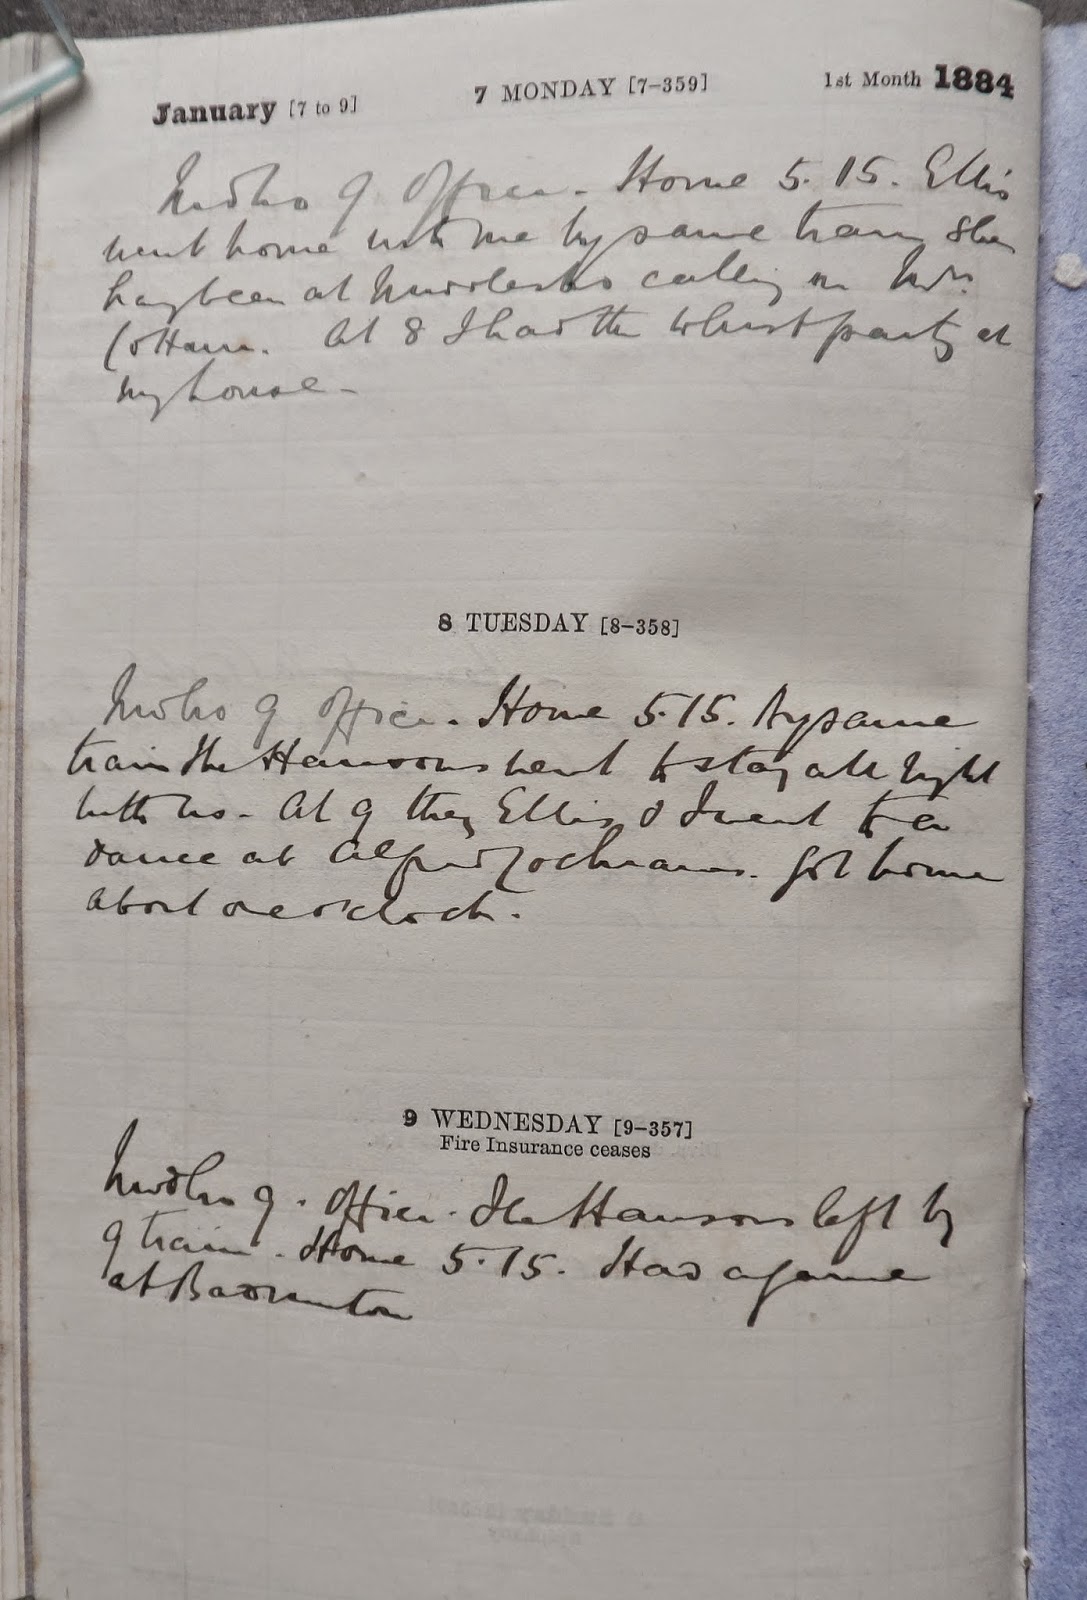 January [7 to 9] 7 MONDAY [7–359] 1st Month 1884
Mdbro 9 Office. Home 5.15. Ellis
went home with me by same train, she
having been at Middlesbro calling on Mrs
Cottam. At 8 I had the whist party at
my house –
8 TUESDAY [8–358]
Mdbro 9 Office. Home 5.15. By same
train the Hansons went to stay all night
with us – At 9 they Ellis & I went to a
dance at Alfred Cochranes. Got home
about one o'clock.
9 WEDNESDAY [9–357]
Fire Insurance ceases
Mdbro 9. Office. The Hansons left by
9 train. Home 5.15. Had a game
at Badminton